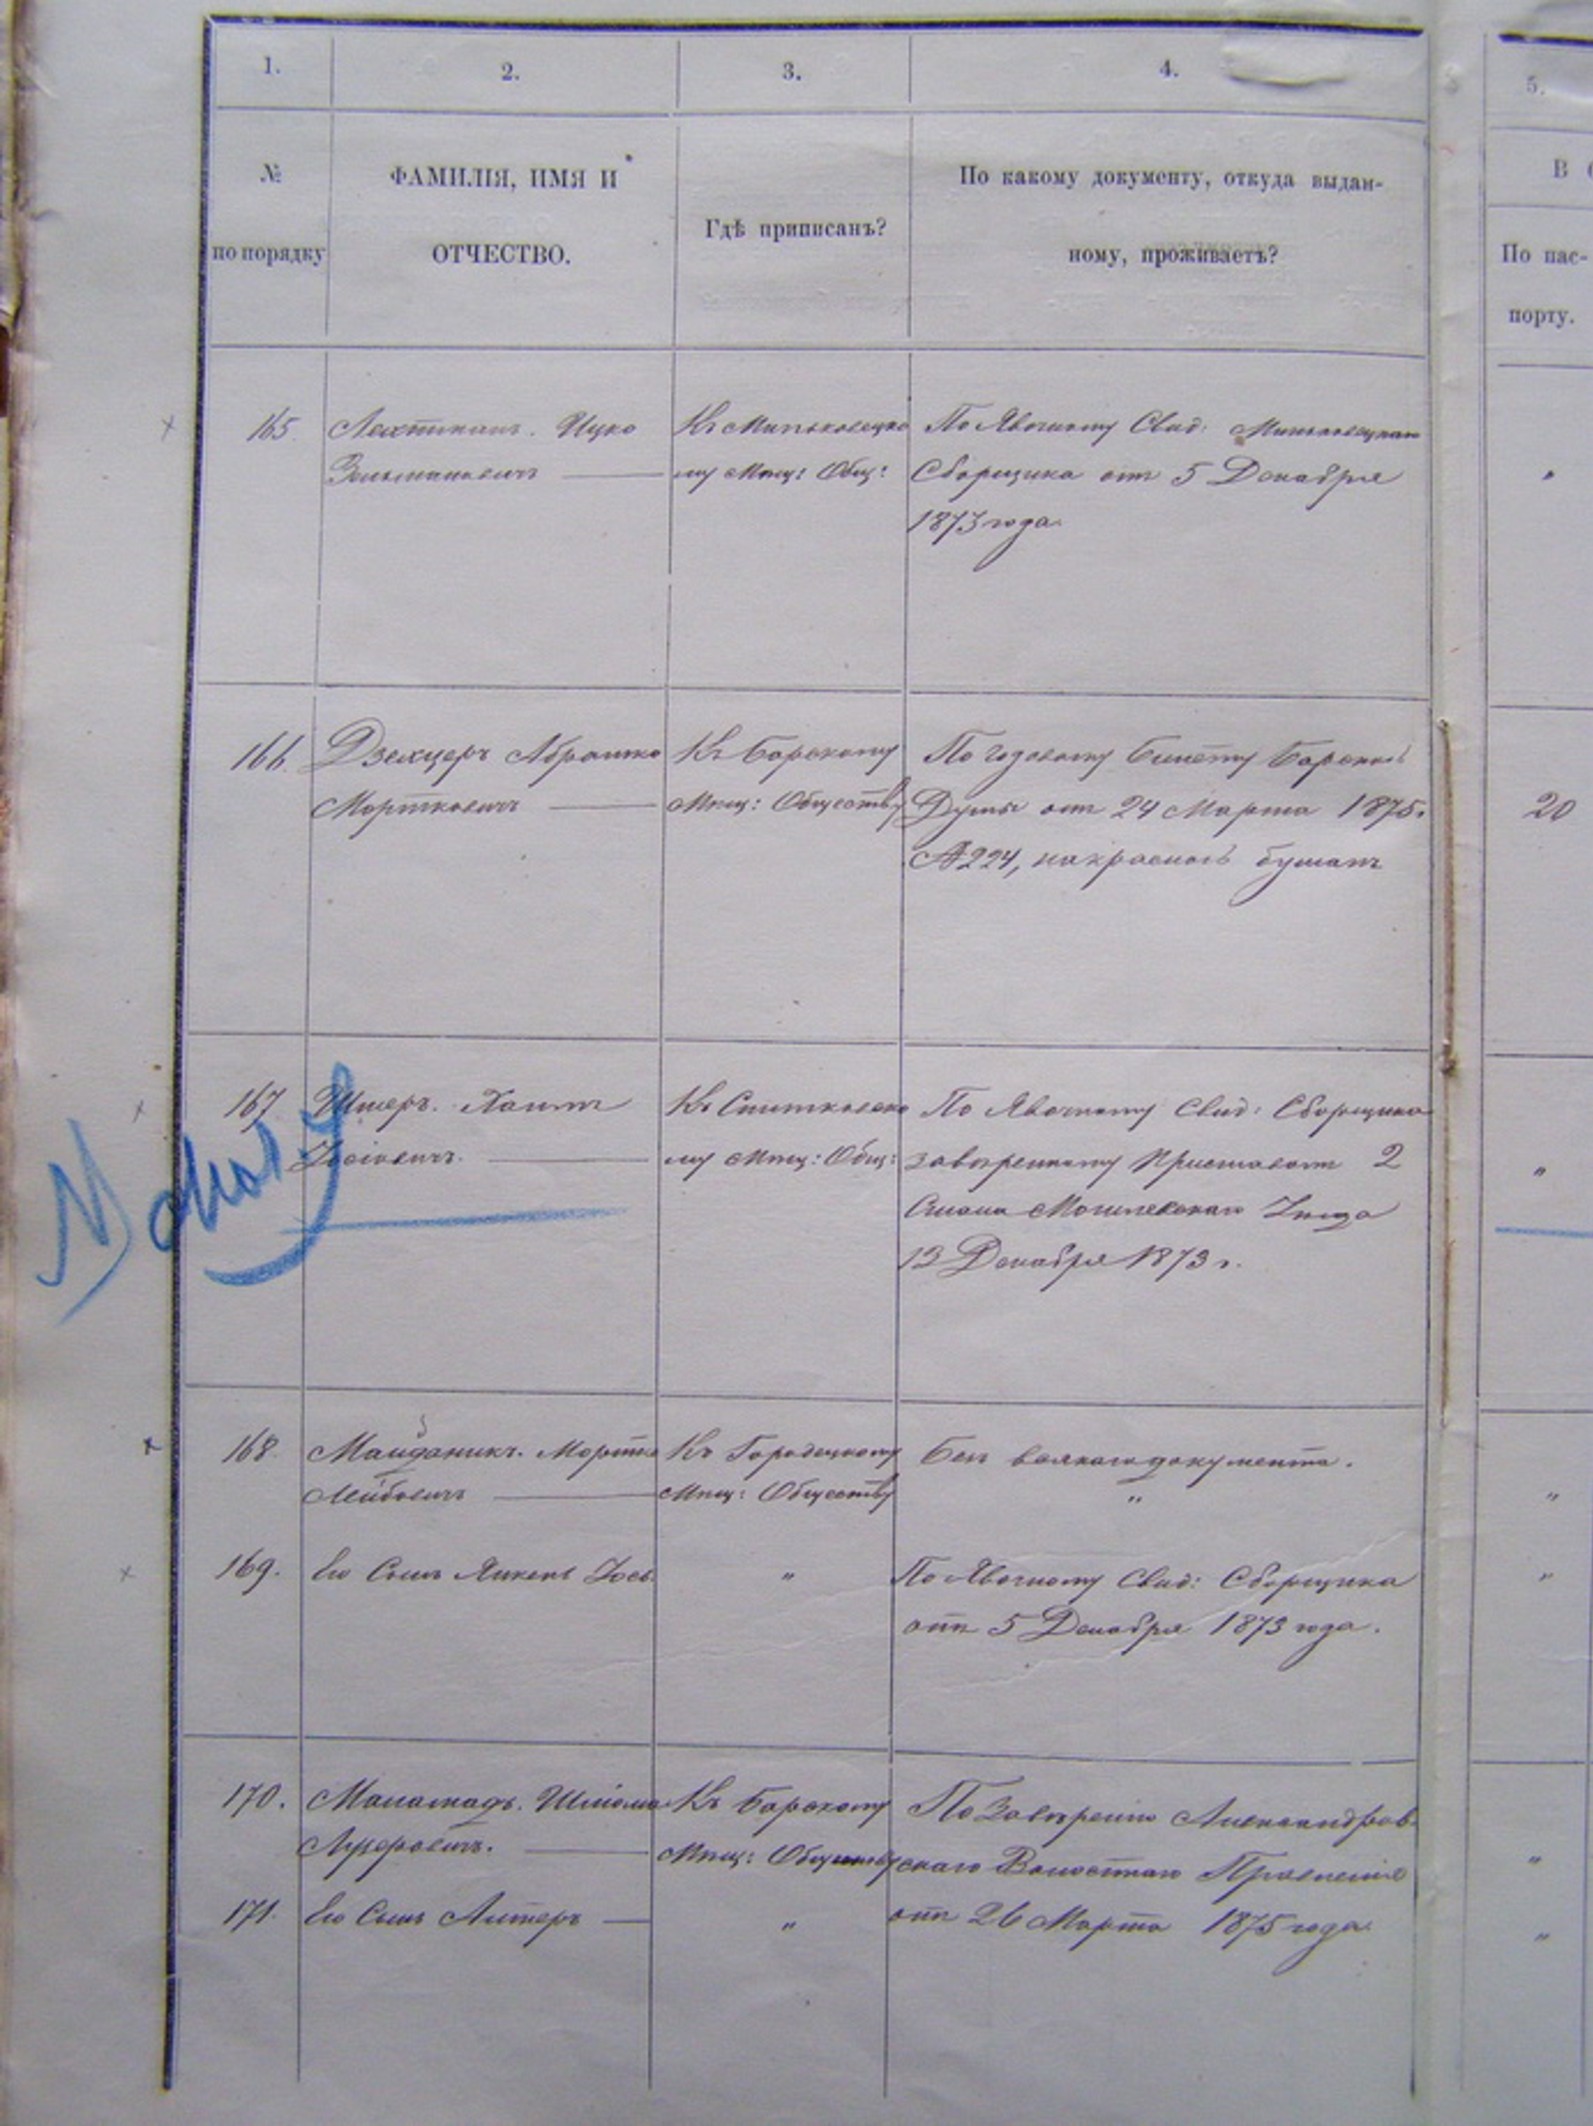 1.
2.
3.
4.
5.
№
по порядку
ФАМИЛІЯ, ИМЯ И
ОТЧЕСТВО.
Гдѣ приписанъ?
По какому документу, откуда выдан-
ному, проживаетъ?
В
По пас-
порту.
165. Ицко
Зельмановичъ
Къ Миньковецко
му Мѣщ: Общ:
По Явочному Свид: Миньковецкаго
Сборщика отъ 5 Декабря
1873 года.
"
166. Дзекцеръ Абрамко
Мортковичъ
Къ Барскому
Мѣщ: Обществу
По годовому билету Барской
Думы отъ 24 Марта 1875.
№ 224, на красной бумагѣ
20
167 Хаимъ
Іосіовичъ.
Къ Снитковско
му Мѣщ: Общ:
По Явочному Свид: Сборщика
завѣренному Приставомъ 2
Стана Могилевскаго Уѣзда
13 Декабря 1873 г.
"
168. Майданикъ. Мортко
Лейбовичъ
Къ Городецкому
Мѣщ: Обществу
Безъ всякаго документа.
"
"
169. Его Сынъ Янкель Іось.
"
По Явочному Свид: Сборщика
отъ 5 Декабря 1873 года.
"
170. Маламадъ. Шліома
Къ Барскому
Мѣщ: Обществу
По Завѣренію Александров-
скаго Волостнаго Правленія
отъ 26 Марта 1875 года.
"
171. Его Сынъ Антеръ
"
"